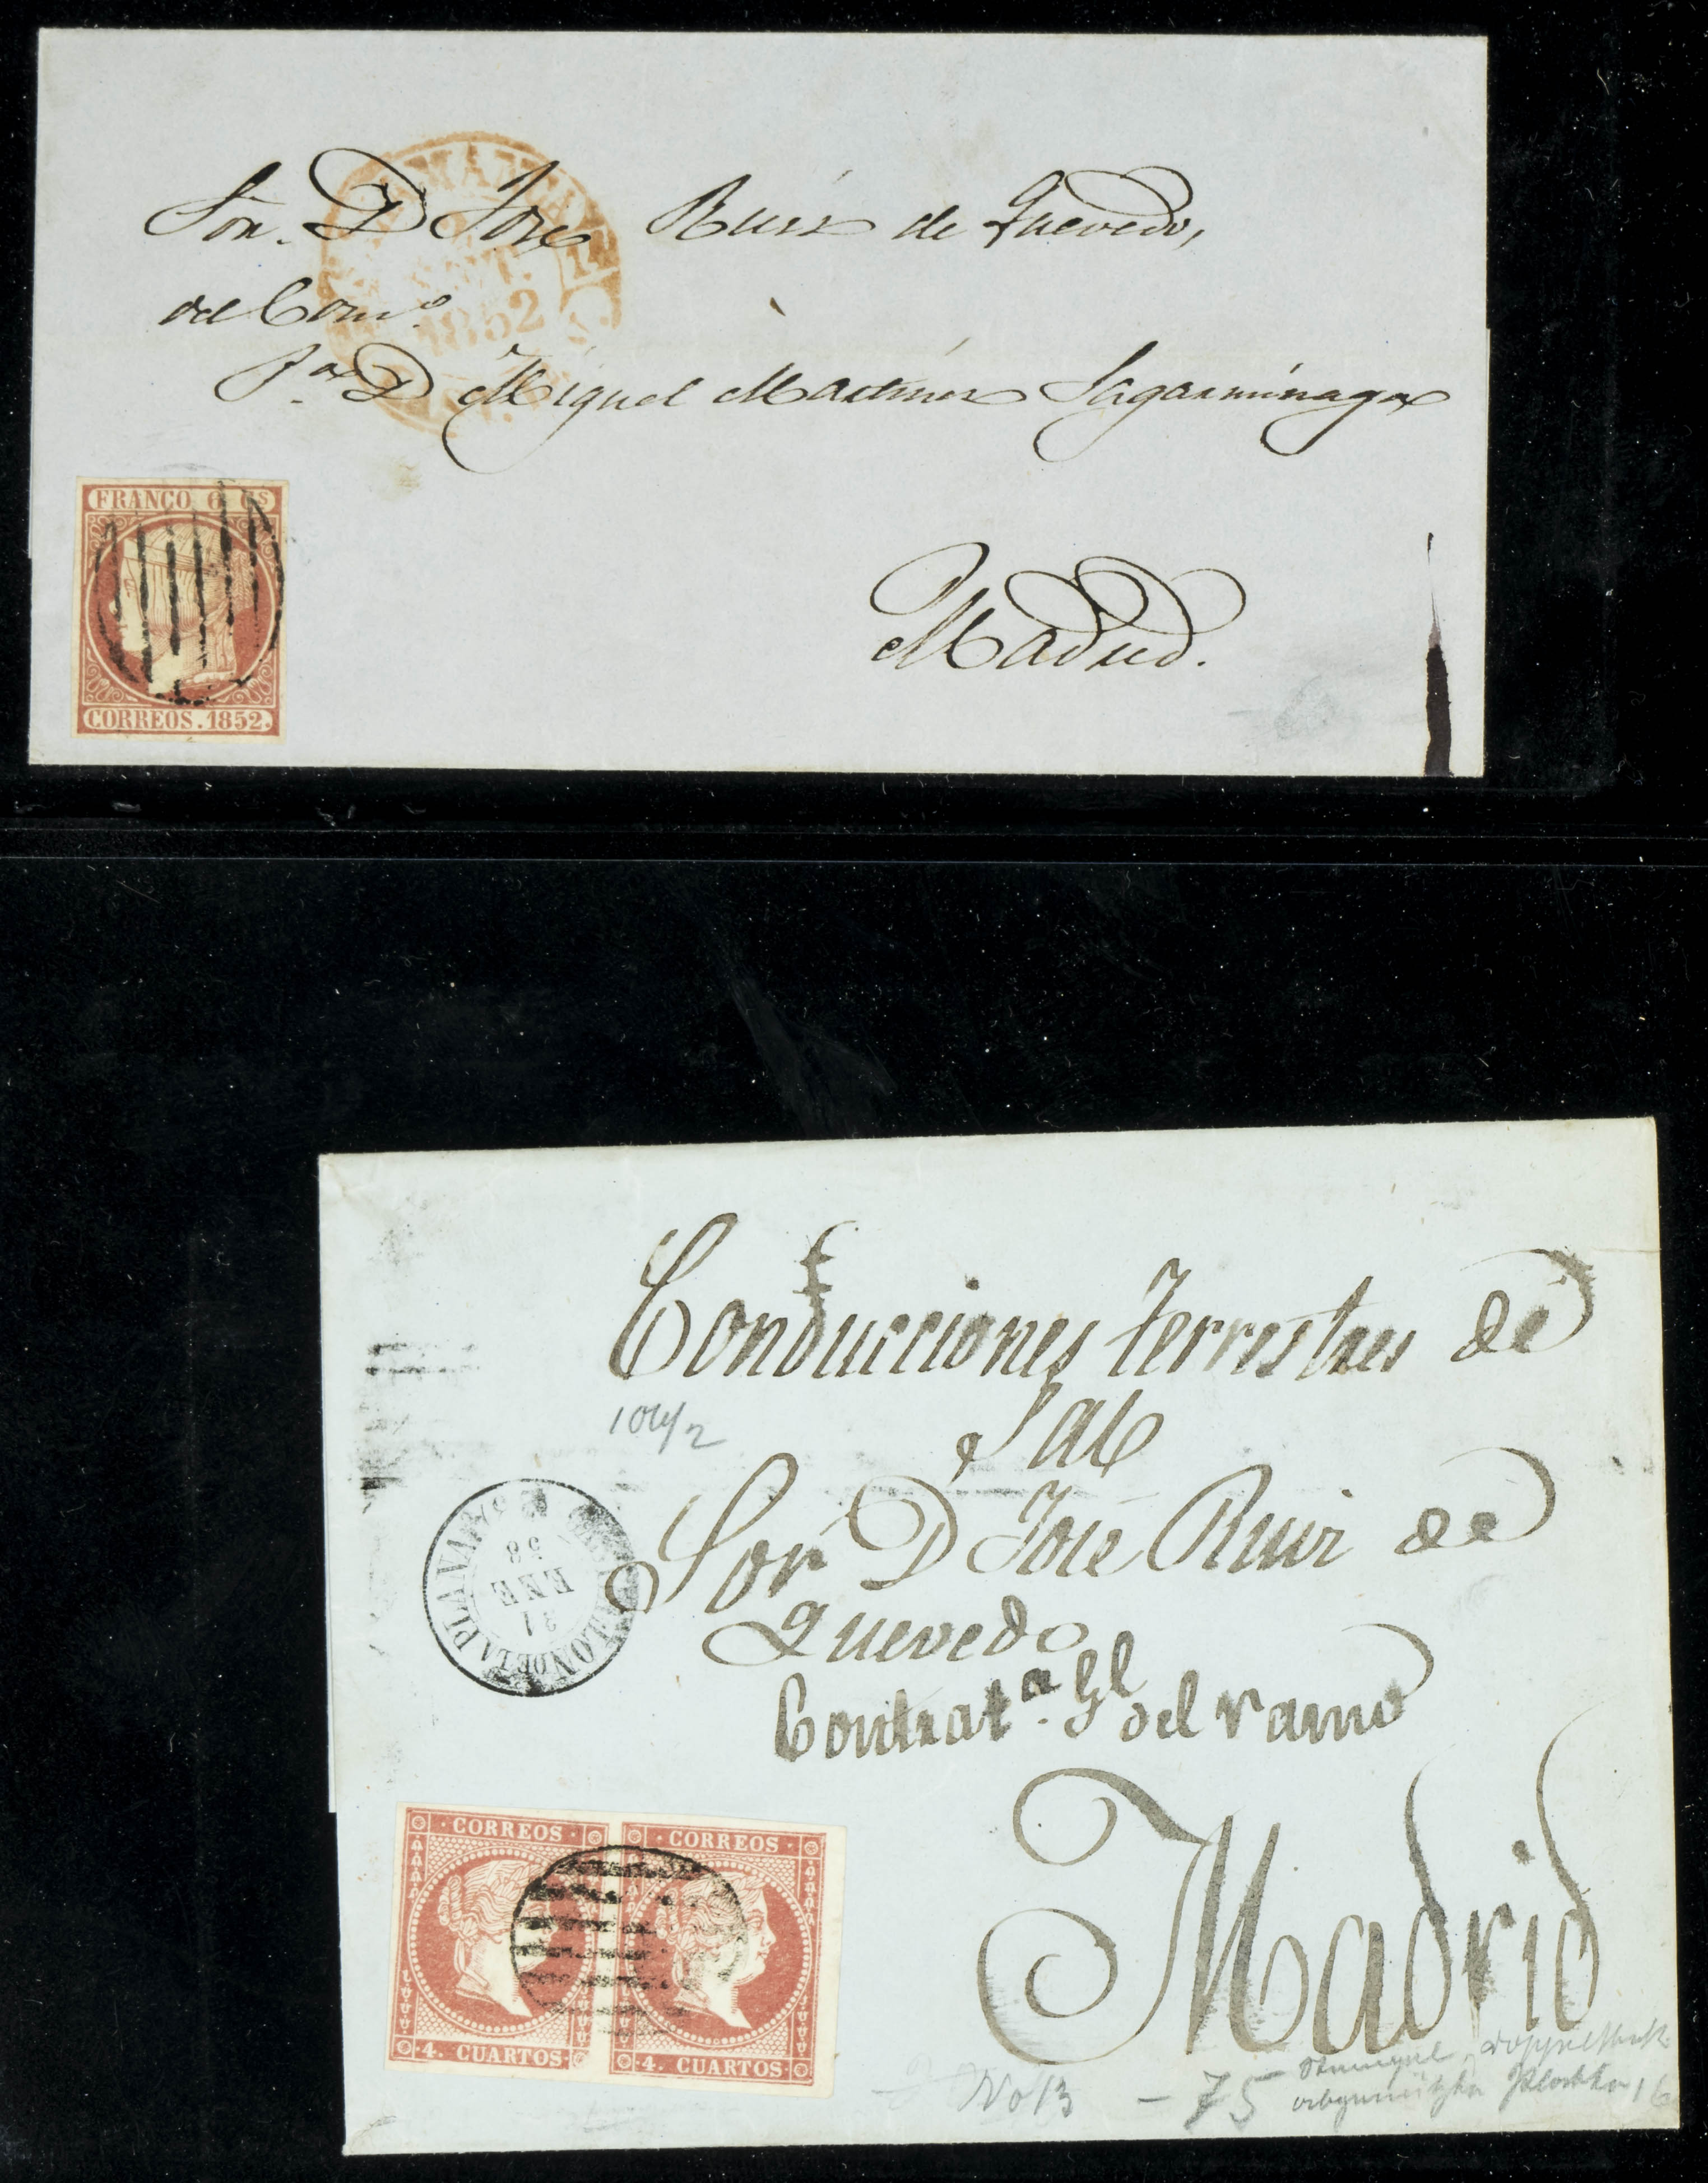 Sor. D José Ruiz de Quevedo,
del Comº.
Pr. D Miguel Martinez Sagarmínaga
1852
FRANCO 6 Cs
CORREOS.1852.
Madrid.
Conducciones terrestres de
Sal
104/2
Sor D José Ruiz de
Quevedo
Contratª. Gl del ramo
Madrid
CASTELLON DE LA PLANA
21
ENE
58
· CORREOS ·
· CORREOS ·
·4. CUARTOS·
·4. CUARTOS·
No 13 - 75